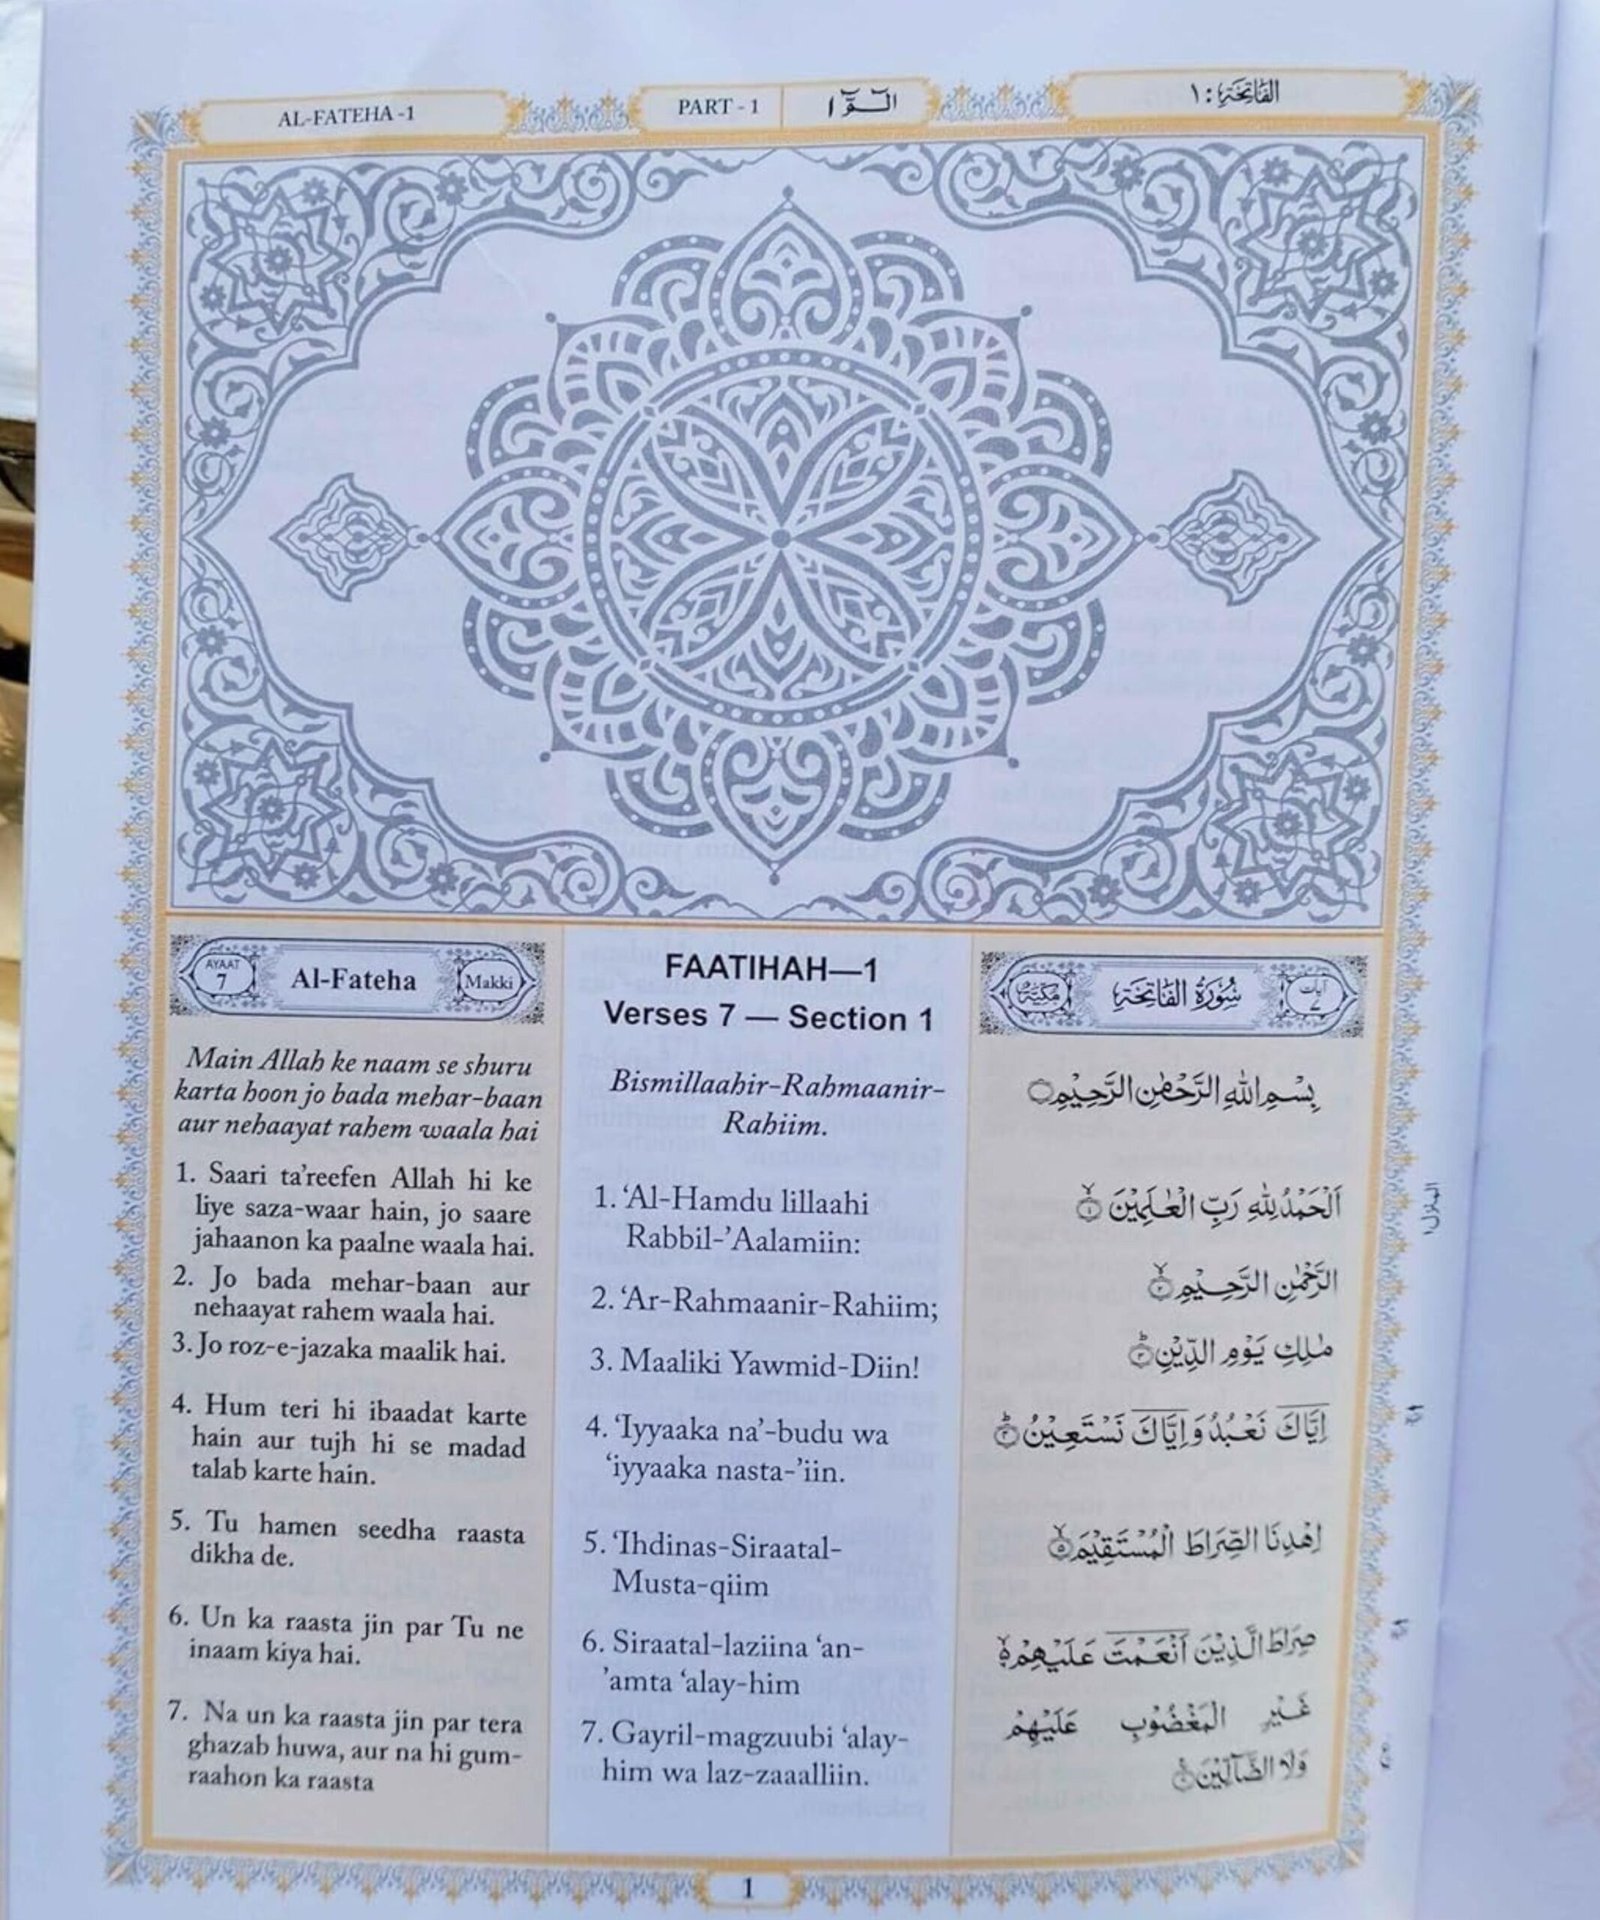 AL-FATEHA -1
PART - 1
الٓـمّٓ ١
الفَاتِحَة: ١
AYAAT
7
Al-Fateha
Makki
Main Allah ke naam se shuru
karta hoon jo bada mehar-baan
aur nehaayat rahem waala hai
1. Saari ta'reefen Allah hi ke
liye saza-waar hain, jo saare
jahaanon ka paalne waala hai.
2. Jo bada mehar-baan aur
nehaayat rahem waala hai.
3. Jo roz-e-jazaka maalik hai.
4. Hum teri hi ibaadat karte
hain aur tujh hi se madad
talab karte hain.
5. Tu hamen seedha raasta
dikha de.
6. Un ka raasta jin par Tu ne
inaam kiya hai.
7. Na un ka raasta jin par tera
ghazab huwa, aur na hi gum-
raahon ka raasta
FAATIHAH—1
Verses 7 — Section 1
Bismillaahir-Rahmaanir-
Rahiim.
1. ‘Al-Hamdu lillaahi
Rabbil-’Aalamiin:
2. ‘Ar-Rahmaanir-Rahiim;
3. Maaliki Yawmid-Diin!
4. ‘Iyyaaka na’-budu wa
‘iyyaaka nasta-’iin.
5. ‘Ihdinas-Siraatal-
Musta-qiim
6. Siraatal-laziina ‘an-
’amta ‘alay-him
7. Gayril-magzuubi ‘alay-
him wa laz-zaaalliin.
آيات
٧
سُورَةُ الفَاتِحَة
مَكِّيَّة
بِسْمِ اللّٰهِ الرَّحْمٰنِ الرَّحِيْمِ
اَلْحَمْدُ لِلّٰهِ رَبِّ الْعٰلَمِيْنَ ۙ‏﴿۱﴾
الرَّحْمٰنِ الرَّحِيْمِ ۙ‏﴿۲﴾
مٰلِكِ يَوْمِ الدِّيْنِ ؕ‏﴿۳﴾
اِيَّاكَ نَعْبُدُ وَاِيَّاكَ نَسْتَعِيْنُ ؕ‏﴿۴﴾
اِهْدِنَا الصِّرَاطَ الْمُسْتَقِيْمَ ۙ‏﴿۵﴾
صِرَاطَ الَّذِيْنَ اَنْعَمْتَ عَلَيْهِمْ
غَيْرِ الْمَغْضُوْبِ عَلَيْهِمْ
وَلَا الضَّآلِّيْنَ
المنزل ١
1